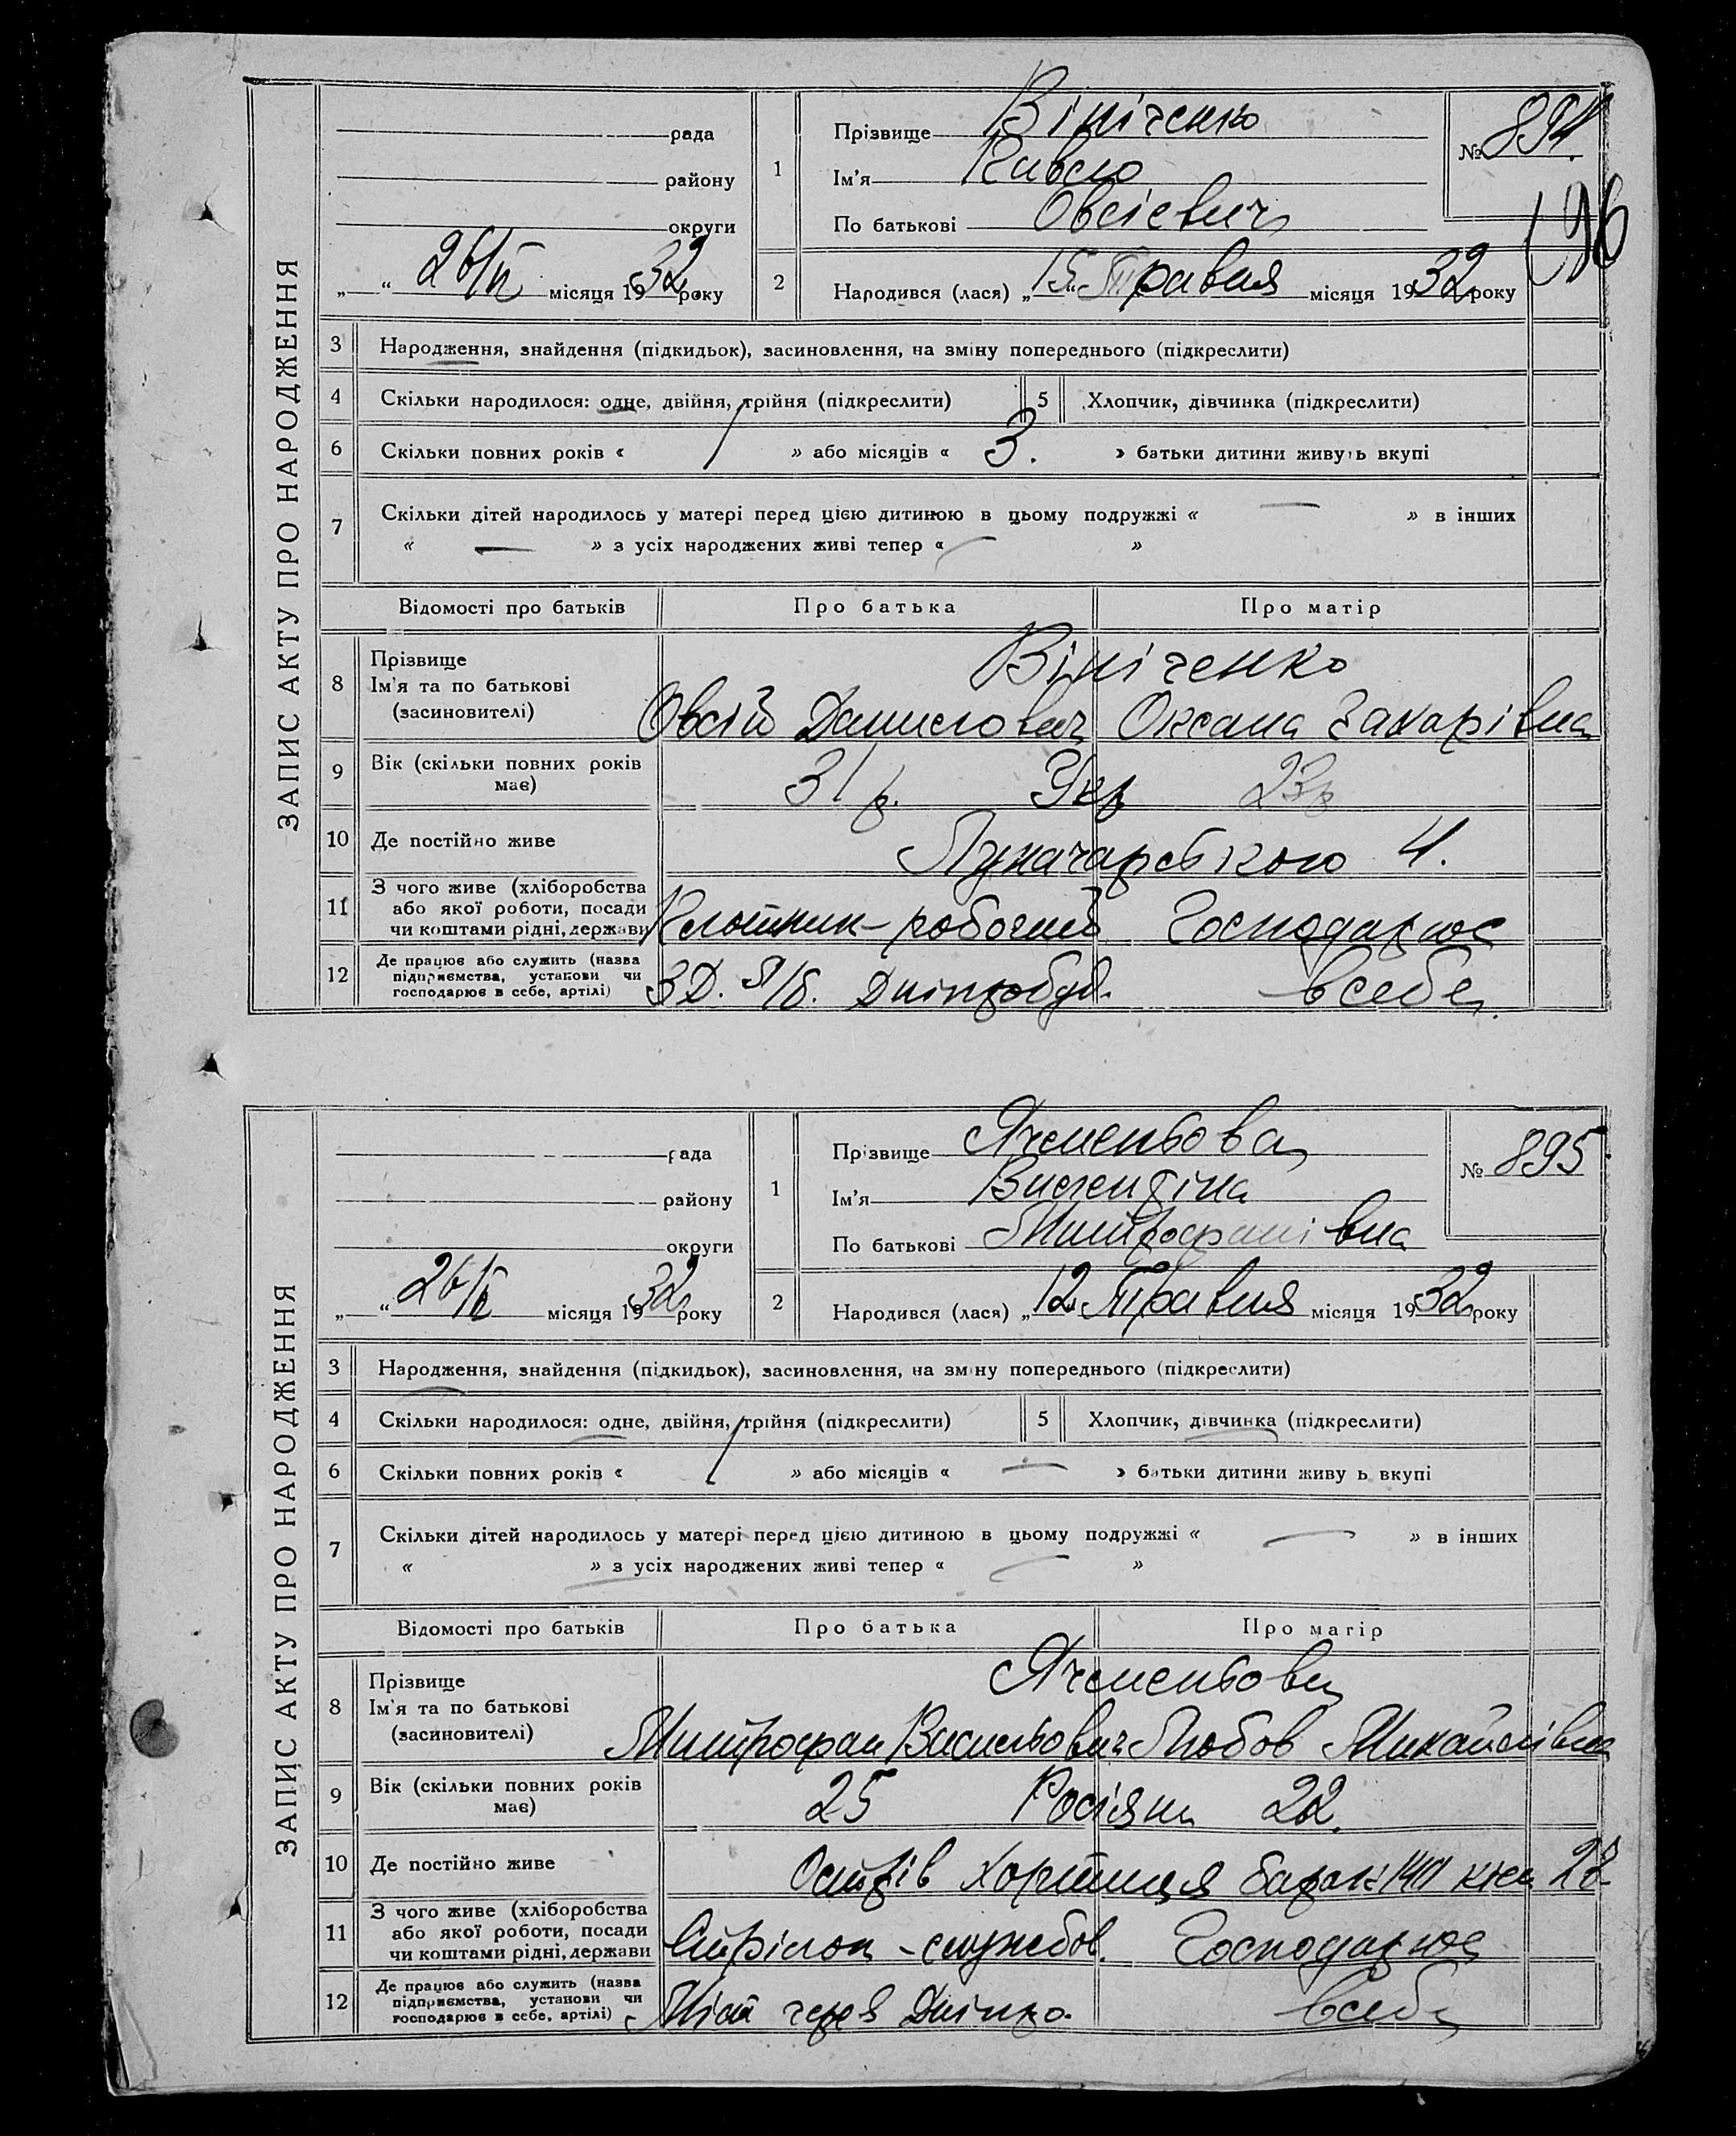 ЗАПИС АКТУ ПРО НАРОДЖЕННЯ
рада
району
округи
„ “ 26/V місяця 1932 року
1
Прізвище Вініченко
Ім'я Павло
По батькові Овсієвич
№ 894.
196
2
Народився (лася) „15“ Травня місяця 1932 року
3 Народження, знайдення (підкидьок), засиновлення, на зміну попереднього (підкреслити)
4 Скільки народилося: одне, двійня, трійня (підкреслити)
5 Хлопчик, дівчинка (підкреслити)
6 Скільки повних років « / » або місяців « 3. » батьки дитини живуть вкупі
7 Скільки дітей народилось у матері перед цією дитиною в цьому подружжі « — » в інших
« — » з усіх народжених живі тепер « — »
Відомості про батьків Про батька Про матір
8 Прізвище
Ім'я та по батькові
(засиновителі)
Вініченко
Овсій Данилович Оксана Захарівна
9 Вік (скільки повних років має)
31 р. Укр 23р
10 Де постійно живе
Луначарського 4.
11 З чого живе (хліборобства
або якої роботи, посади
чи коштами рідні, держави
робочий Господарює
12 Де працює або служить (назва
підприємства, установи чи
господарює в себе, артілі)
Дніпробуд. в себе
ЗАПИС АКТУ ПРО НАРОДЖЕННЯ
рада
району
округи
„ “ 26/V місяця 1932 року
1
Прізвище Ячменьова
Ім'я Валентіна
По батькові Митрофанівна
№ 895
2
Народився (лася) „12“ Травня місяця 1932 року
3 Народження, знайдення (підкидьок), засиновлення, на зміну попереднього (підкреслити)
4 Скільки народилося: одне, двійня, трійня (підкреслити)
5 Хлопчик, дівчинка (підкреслити)
6 Скільки повних років « / » або місяців « — » батьки дитини живуть вкупі
7 Скільки дітей народилось у матері перед цією дитиною в цьому подружжі « — » в інших
« » з усіх народжених живі тепер « — »
Відомості про батьків Про батька Про матір
8 Прізвище
Ім'я та по батькові
(засиновителі)
Ячменьови
Митрофан Васильович Любов Михайлівна
9 Вік (скільки повних років має)
25 Росіяни 22.
10 Де постійно живе
Острів Хортиця барак 28
11 З чого живе (хліборобства
або якої роботи, посади
чи коштами рідні, держави
Стрілок - службов. Господарює
12 Де працює або служить (назва
підприємства, установи чи
господарює в себе, артілі)
Міст через Дніпро. в себе